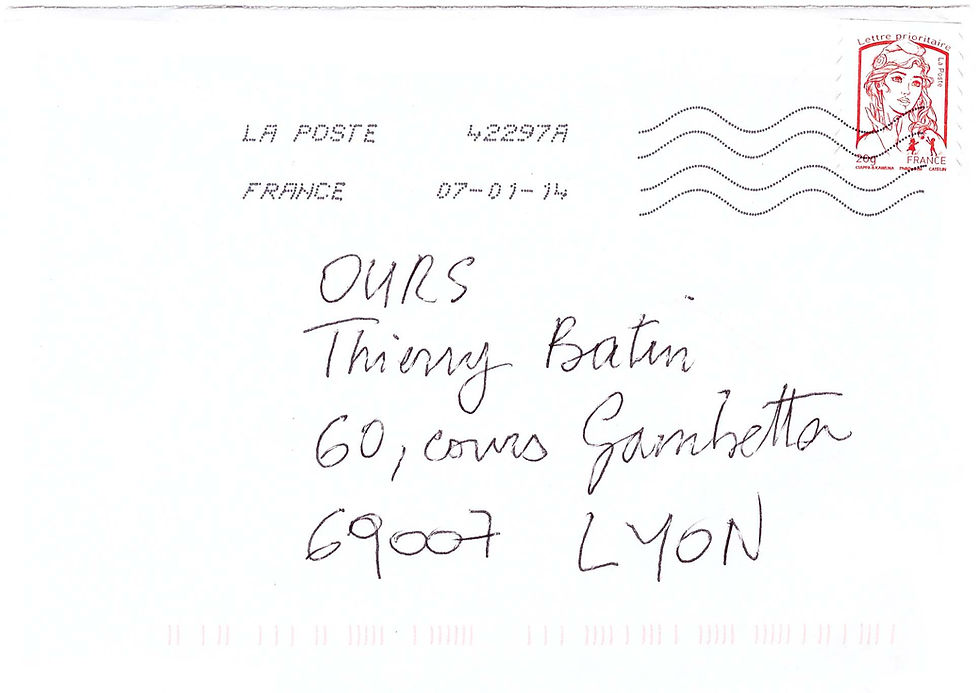 Lettre prioritaire
La Poste
LA POSTE 42297A
20g FRANCE
FRANCE 07-01-14
OURS
Thierry Batin
60, cours Gambetta
69007 LYON